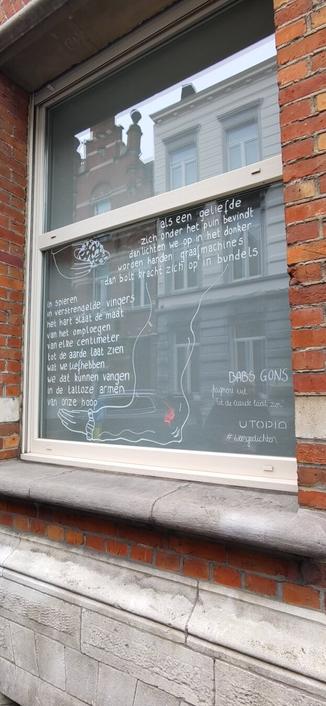 als een geliefde
zich onder het puin bevindt
dan lichten we op in het donker
worden handen graafmachines
dan balt kracht zich op in bundels
in spieren
in verstrengelde vingers
het hart slaat de maat
van het omploegen
van elke centimeter
tot de aarde laat zien
wat we liefhebben
we dat kunnen vangen
in de talloze armen
van onze hoop
BABS GONS
fragment uit
tot de aarde laat zien
UTOPIA
#weergedichten